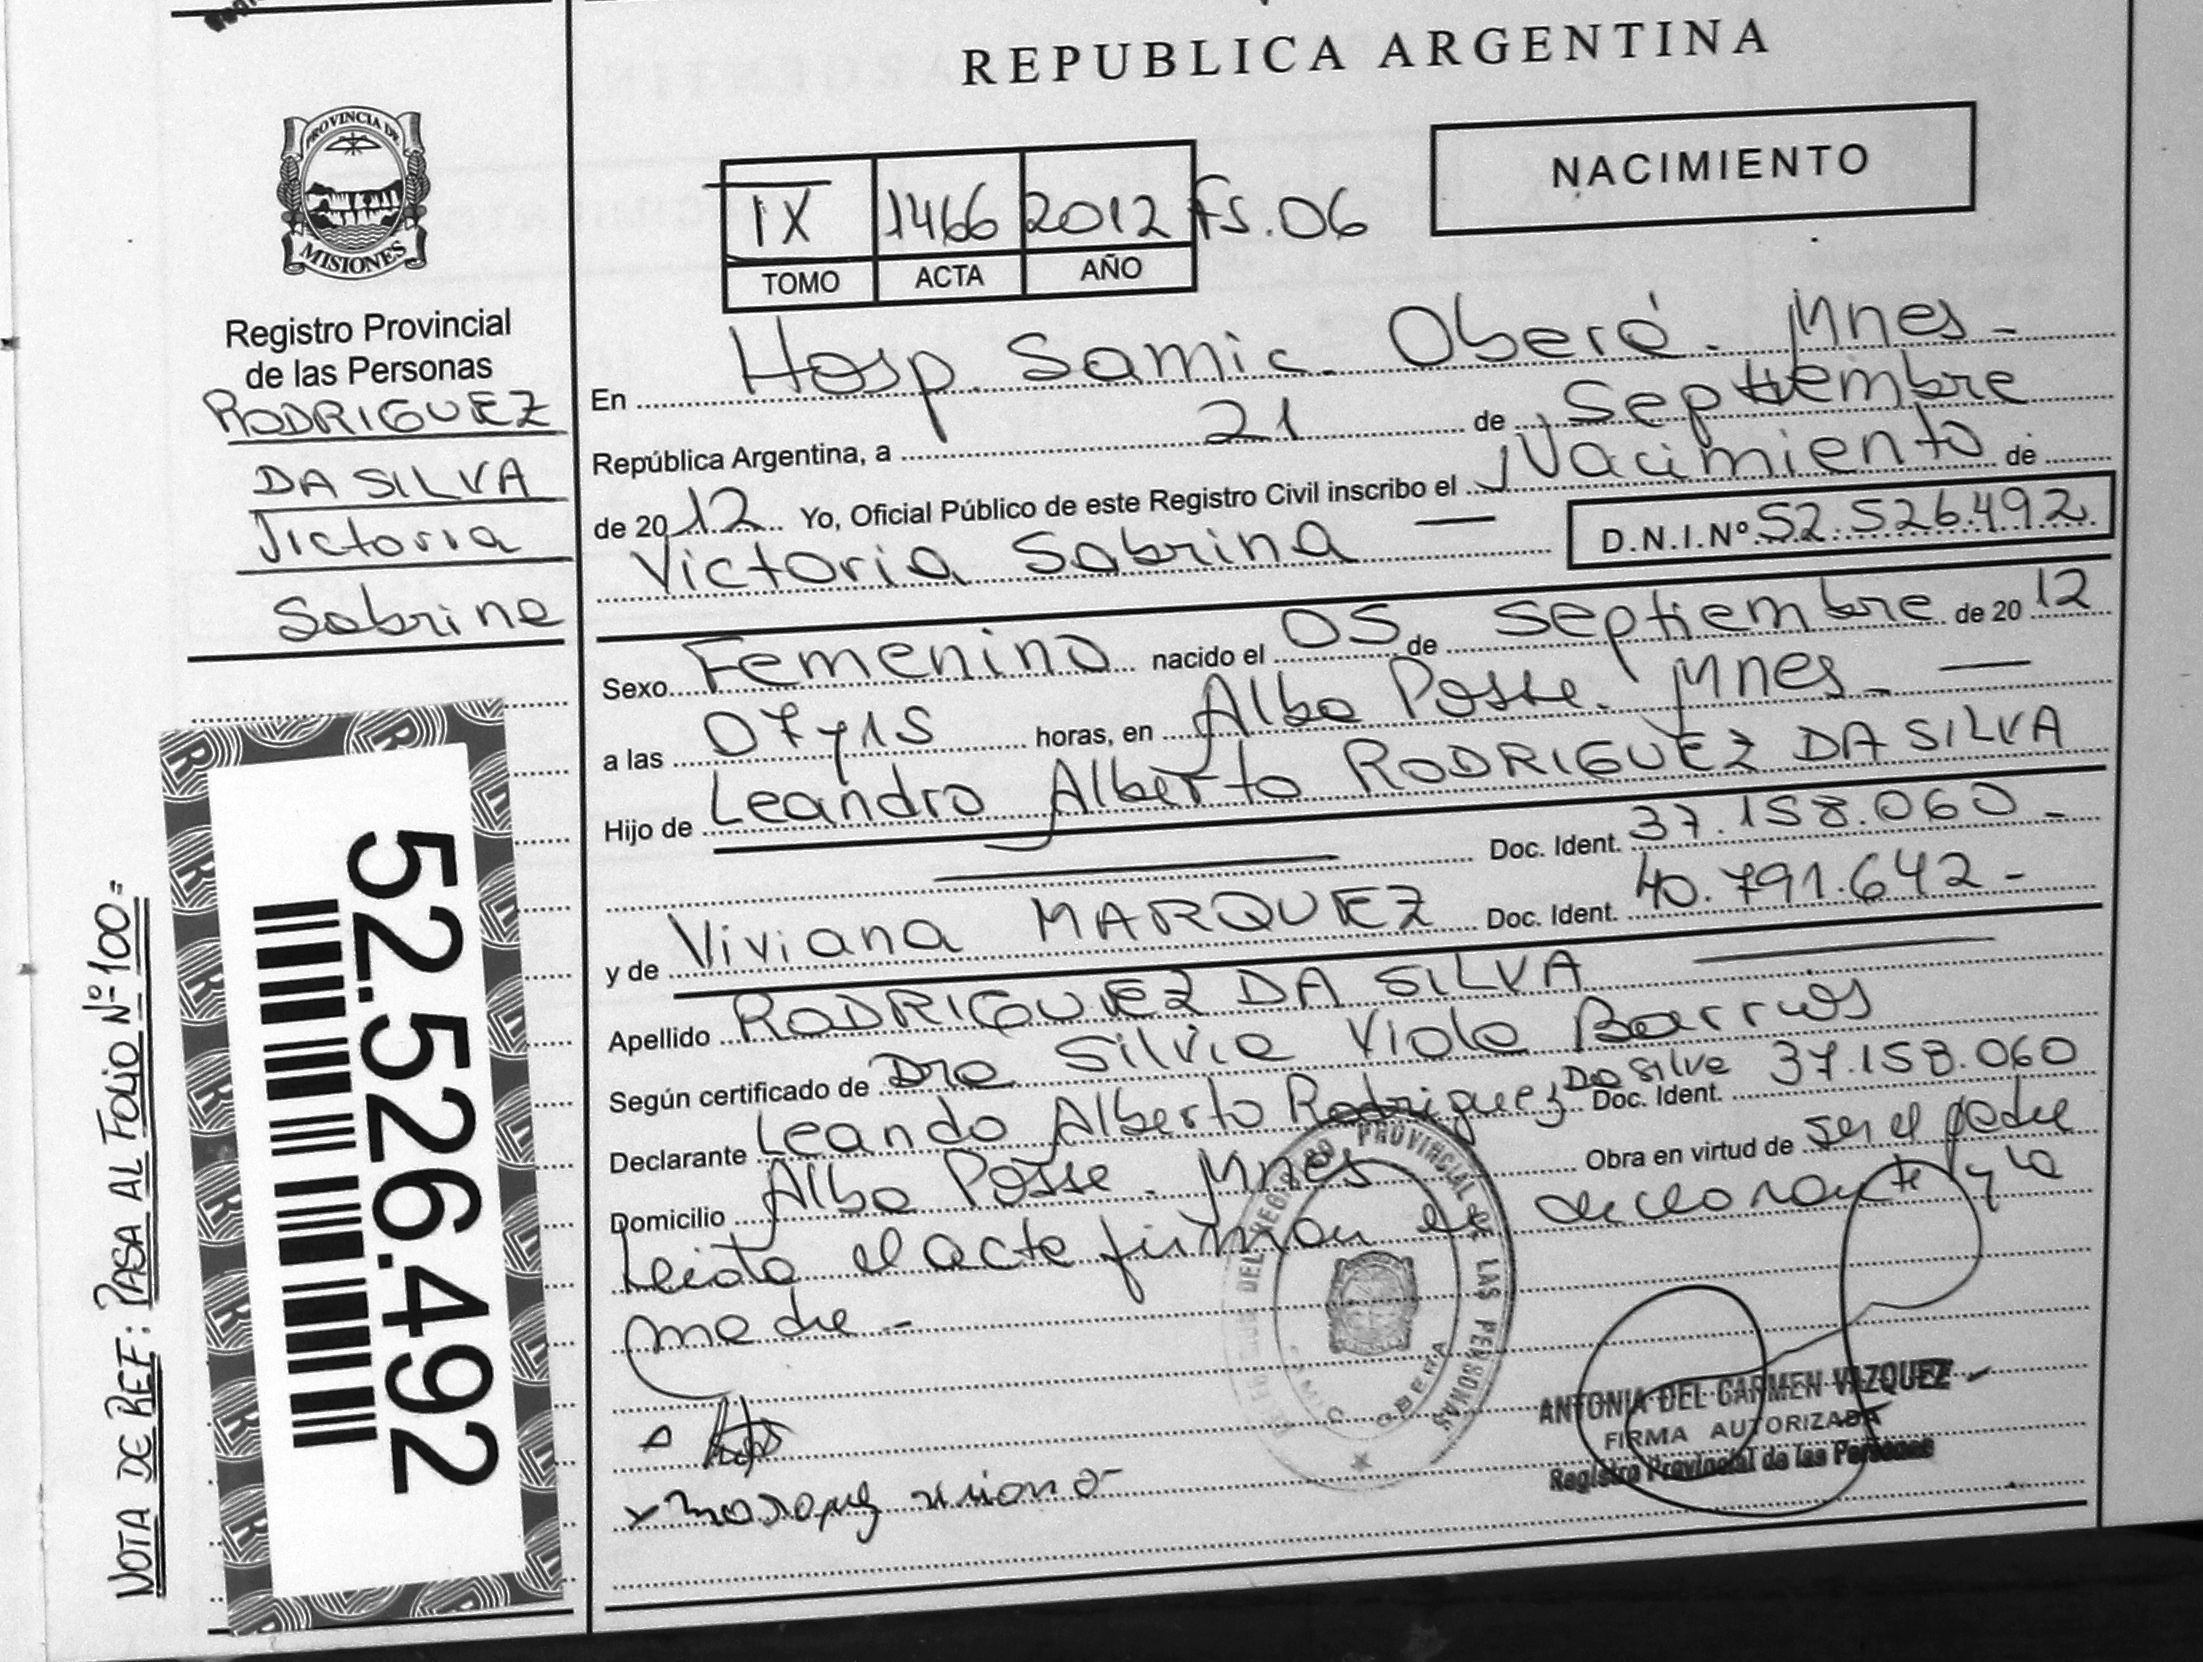 REPUBLICA ARGENTINA
NACIMIENTO
IX 1466 2012 FS.06
TOMO ACTA AÑO
PROVINCIA DE
MISIONES
Registro Provincial
de las Personas
RODRIGUEZ
DA SILVA
Victoria
Sabrina
52.526.492
NOTA DE REF: PASA AL FOLIO Nº 100=
En Hosp. Samic. Oberá. Mnes-
República Argentina, a 21 de Septiembre
de 2012 Yo, Oficial Público de este Registro Civil inscribo el Nacimiento de
Victoria Sabrina — D.N.I.Nº 52.526.492
Sexo Femenino nacido el 05 de Septiembre de 2012
a las 07 y 15 horas, en Alba Posse. Mnes- —
Hijo de Leandro Alberto RODRIGUEZ DA SILVA
Doc. Ident. 37.158.060-
y de Viviana MARQUEZ Doc. Ident. 40.791.642-
Apellido RODRIGUEZ DA SILVA
Según certificado de Dra Silvia Viola Barrios
Declarante Leando Alberto Rodriguez Da Silva Doc. Ident. 37.158.060
Domicilio Alba Posse. Mnes Obra en virtud de ser el padre
Leida el acta firman el declarante y la
madre-
REGISTRO PROVINCIAL DE LAS PERSONAS
OBERA
ANTONIA DEL CARMEN VAZQUEZ
FIRMA AUTORIZADA
Registro Provincial de las Personas